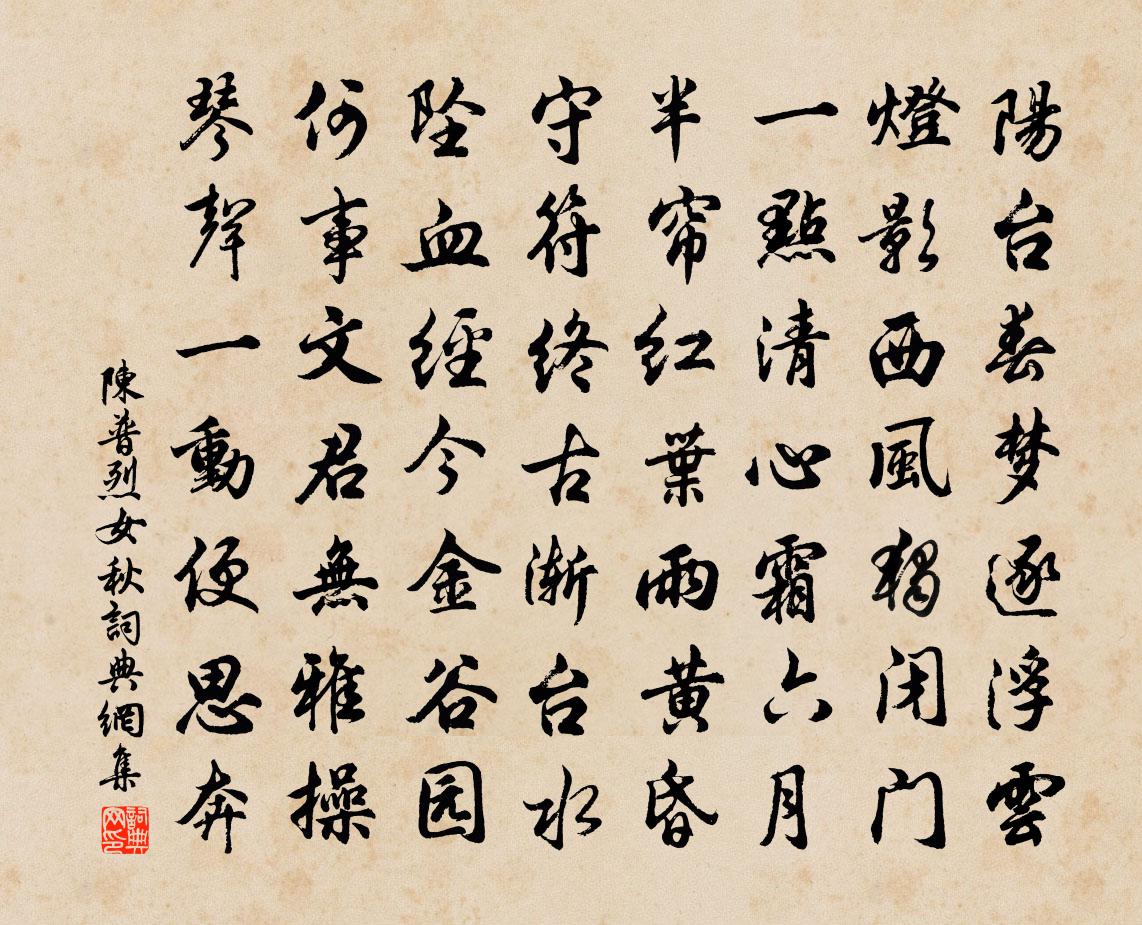 陽台春梦逐浮雲
燈影西風獨闭门
一點清心霜六月
半帘红葉雨黄昏
守符终古渐台水
坠血經今金谷园
何事文君無雅操
琴聲一動便思奔
陳普烈女秋詞典網集
詞典网印